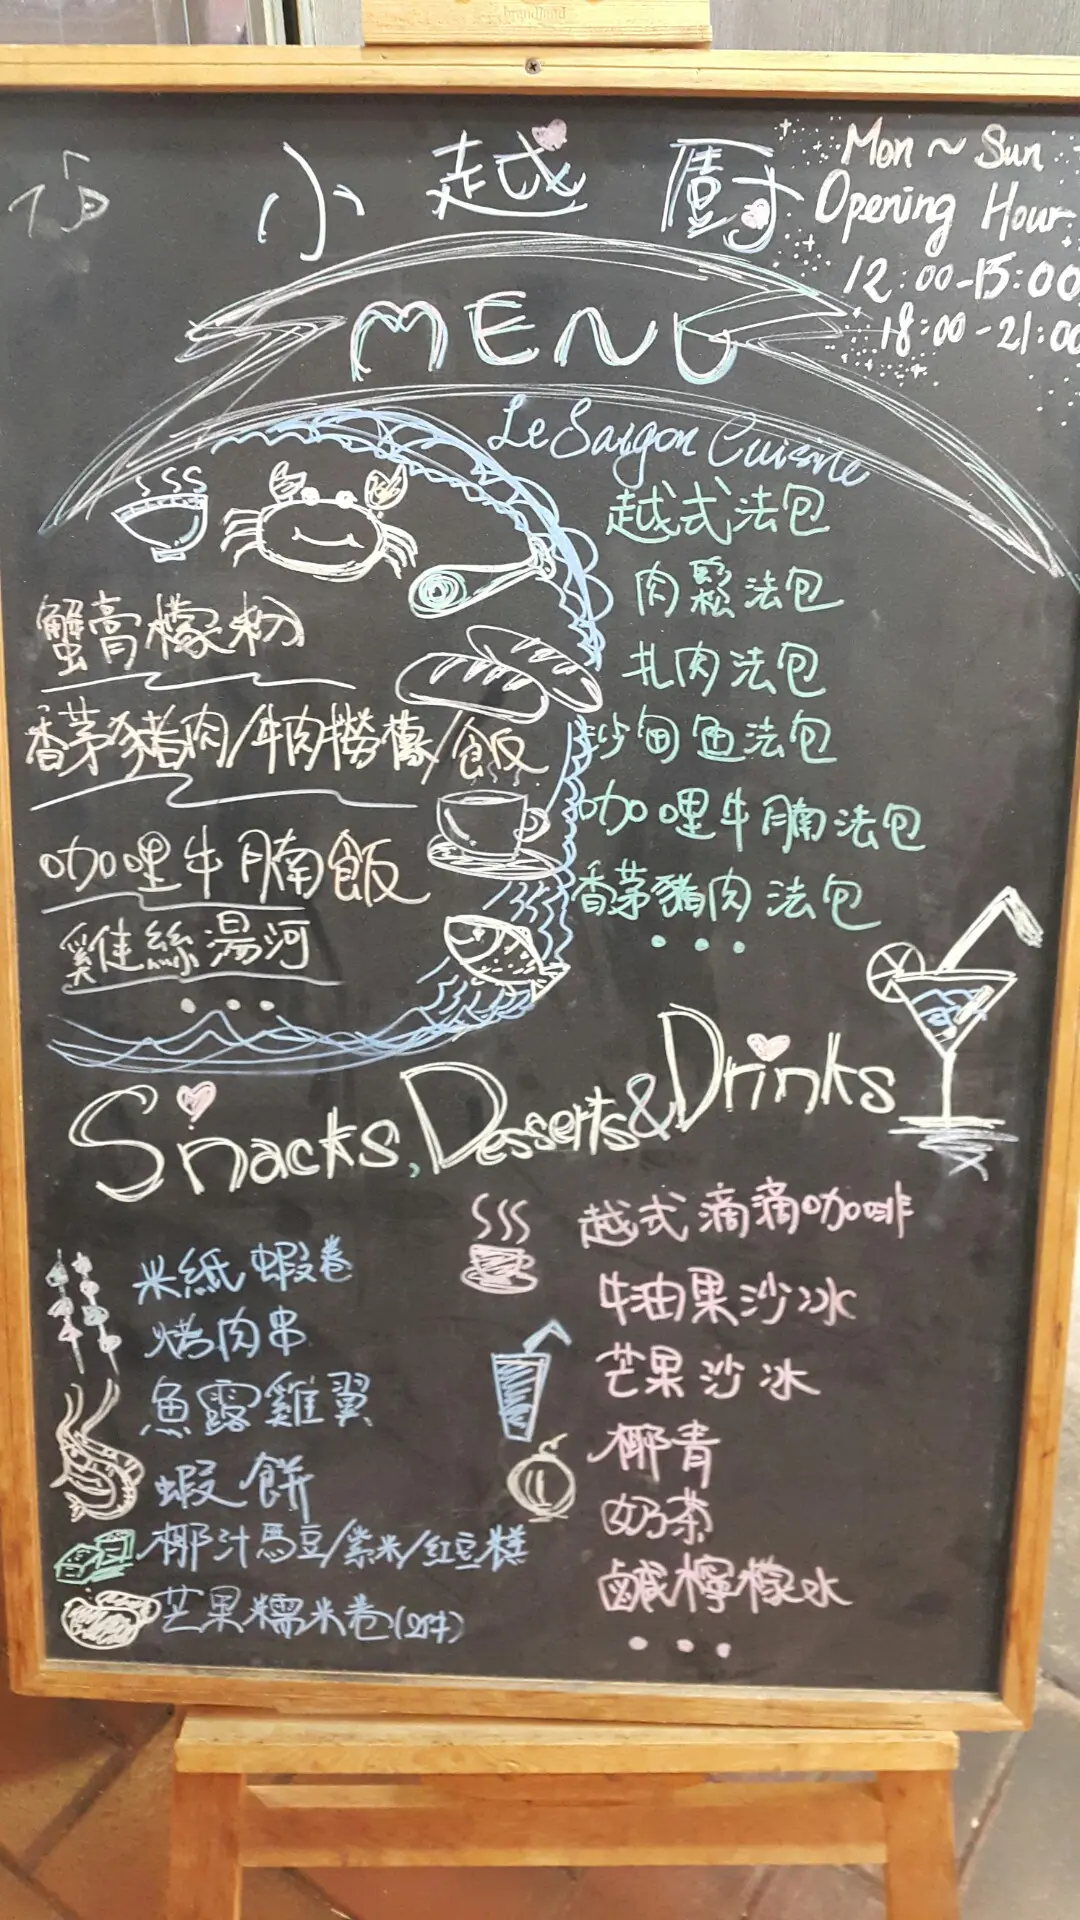 brandbird
小越廚
Mon ~ Sun
Opening Hour
12:00-15:00
18:00-21:00
MENU
Le Saigon Cuisine
蟹膏檬粉
香茅豬肉/牛肉撈檬/飯
咖哩牛腩飯
雞絲湯河
...
越式法包
肉鬆法包
扎肉法包
沙甸魚法包
咖哩牛腩法包
香茅豬肉法包
...
Snacks, Desserts & Drinks
米紙蝦卷
烤肉串
魚露雞翼
蝦餅
椰汁馬豆/紫米/紅豆糕
芒果糯米卷(2件)
越式滴滴咖啡
牛油果沙冰
芒果沙冰
椰青
奶茶
鹹檸檬水
...